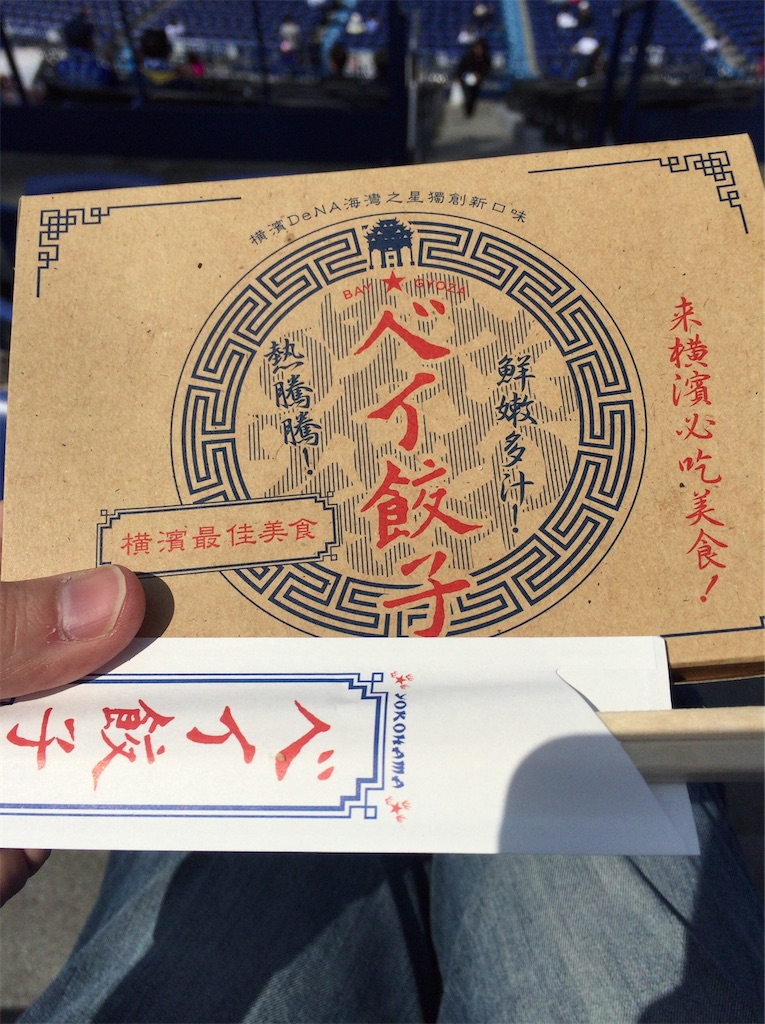 横濱DeNA海灣之星獨創新口味
BAY ★ GYOZA
ベイ餃子
鮮嫩多汁！
熱騰騰！
横濱最佳美食
来横濱必吃美食！
YOKOHAMA
ベイ餃子